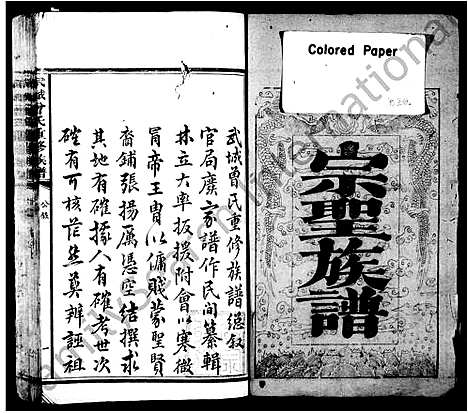 Colored Paper
宗聖族譜
武城曾氏重修族譜總敘
官局廣家譜作民間纂輯
林立大率扳援附會以寒微
冒帝王胄以傭賤蒙聖賢
裔鋪張揚厲憑空結撰求
其地有確據人有確考世次
確有可核茫然莫辨誣祖
武城曾氏重修族譜